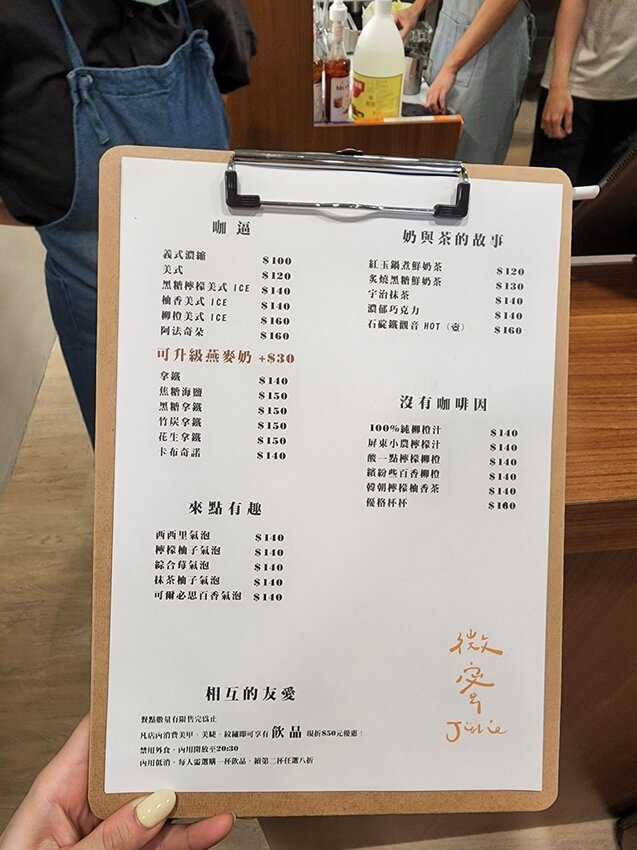 咖逼
義式濃縮 $100
美式 $120
黑糖檸檬美式 ICE $140
柚香美式 ICE $140
柳橙美式 ICE $160
阿法奇朵 $160
可升級燕麥奶 +$30
拿鐵 $140
焦糖海鹽 $150
黑糖拿鐵 $150
竹炭拿鐵 $150
花生拿鐵 $150
卡布奇諾 $140
來點有趣
西西里氣泡 $140
檸檬柚子氣泡 $140
綜合莓氣泡 $140
抹茶柚子氣泡 $140
可爾必思百香氣泡 $140
奶與茶的故事
紅玉鍋煮鮮奶茶 $120
炙燒黑糖鮮奶茶 $130
宇治抹茶 $140
濃郁巧克力 $140
石碇鐵觀音 HOT (壺) $160
沒有咖啡因
100%純柳橙汁 $140
屏東小農檸檬汁 $140
酸一點檸檬柳橙 $140
繽紛些百香柳橙 $140
韓朝檸檬柚香茶 $140
優格杯杯 $160
相互的友愛
餐點數量有限售完為止
凡店內消費美甲、美睫、紋繡即可享有 飲品 現折$50元優惠！
禁用外食，內用開放至20:30
內用低消，每人需選購一杯飲品，續第二杯任選八折
微
Julie